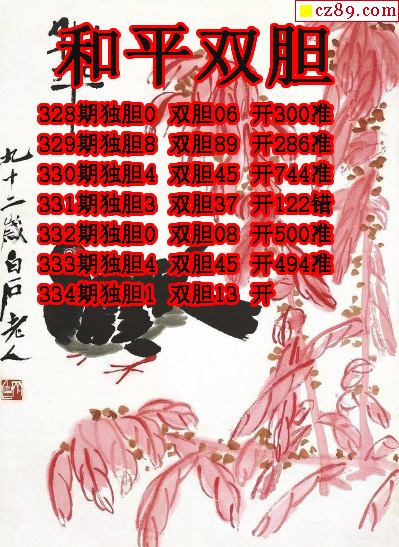 cz89.com
和平双胆
328期独胆0 双胆06 开300准
329期独胆8 双胆89 开286准
330期独胆4 双胆45 开744准
331期独胆3 双胆37 开122错
332期独胆0 双胆08 开500准
333期独胆4 双胆45 开494准
334期独胆1 双胆13 开
九十二岁白石老人